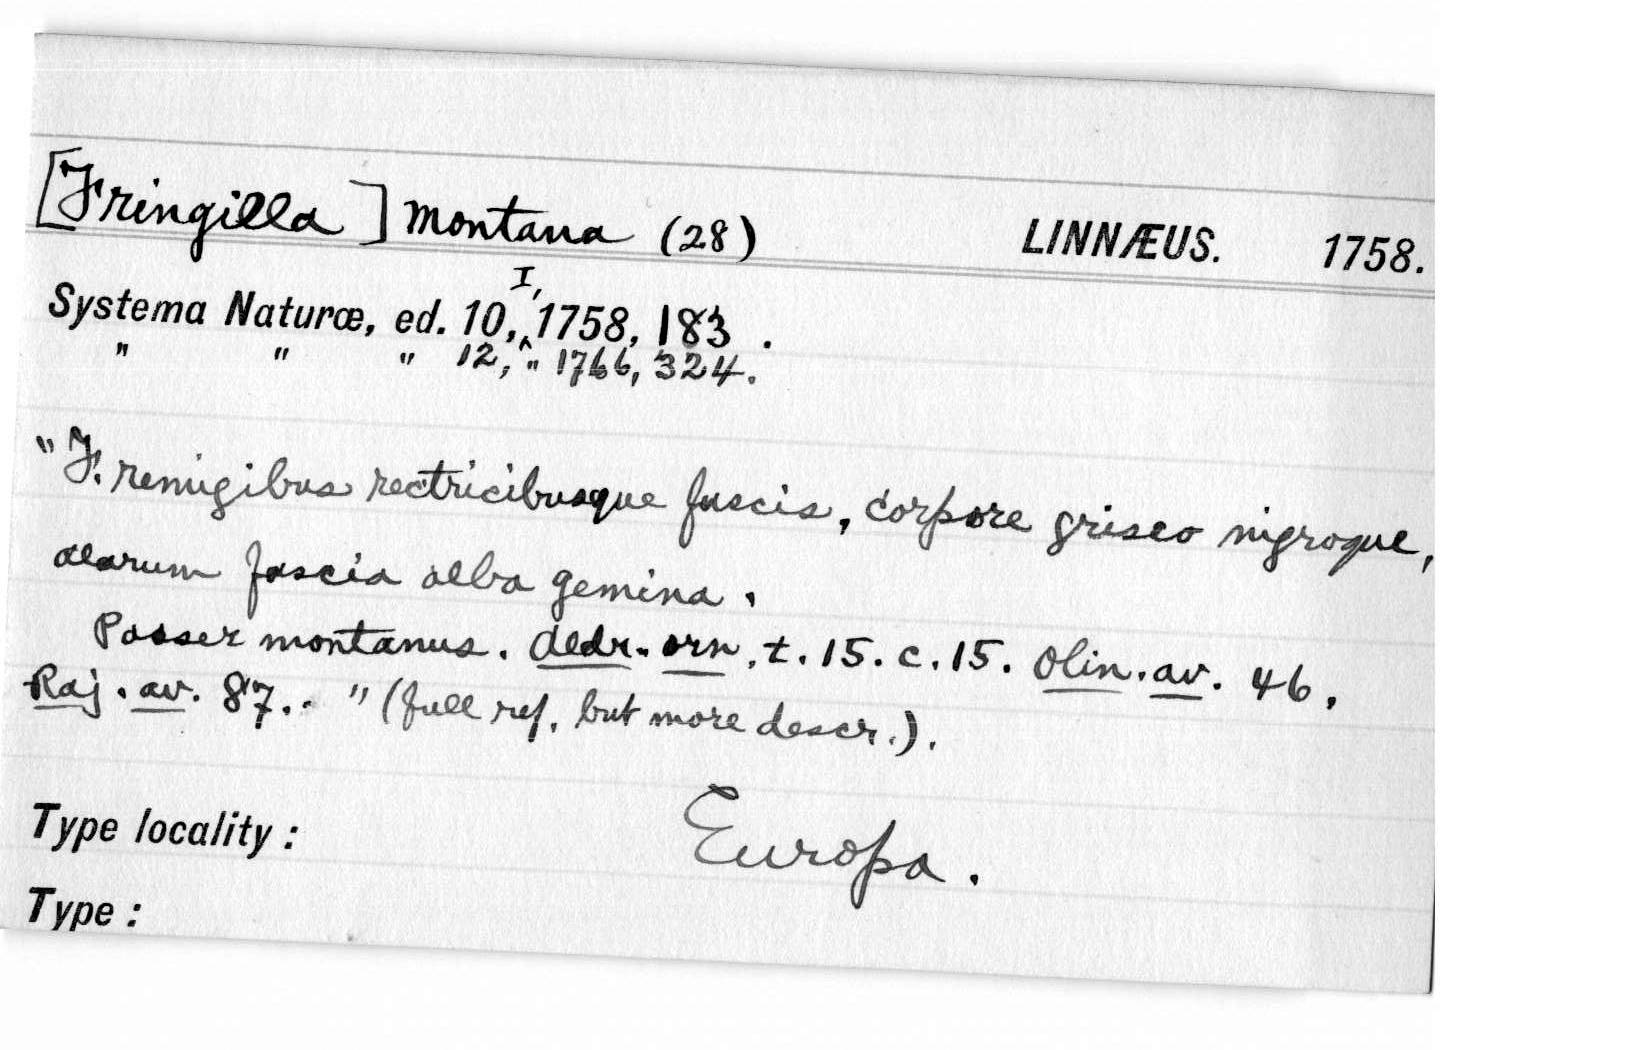 [Fringilla] montana (28) LINNÆUS. 1758.
Systema Naturæ, ed. 10, I, 1758, 183.
" " " 12, " 1766, 324.
"F. remigibus rectricibusque fuscis, corpore griseo nigroque,
alarum fascia alba gemina.
Passer montanus. Aldr. orn. t. 15. c. 15. Olin. av. 46.
Raj. av. 87.." (full ref. but more descr.).
Type locality: Europa.
Type: